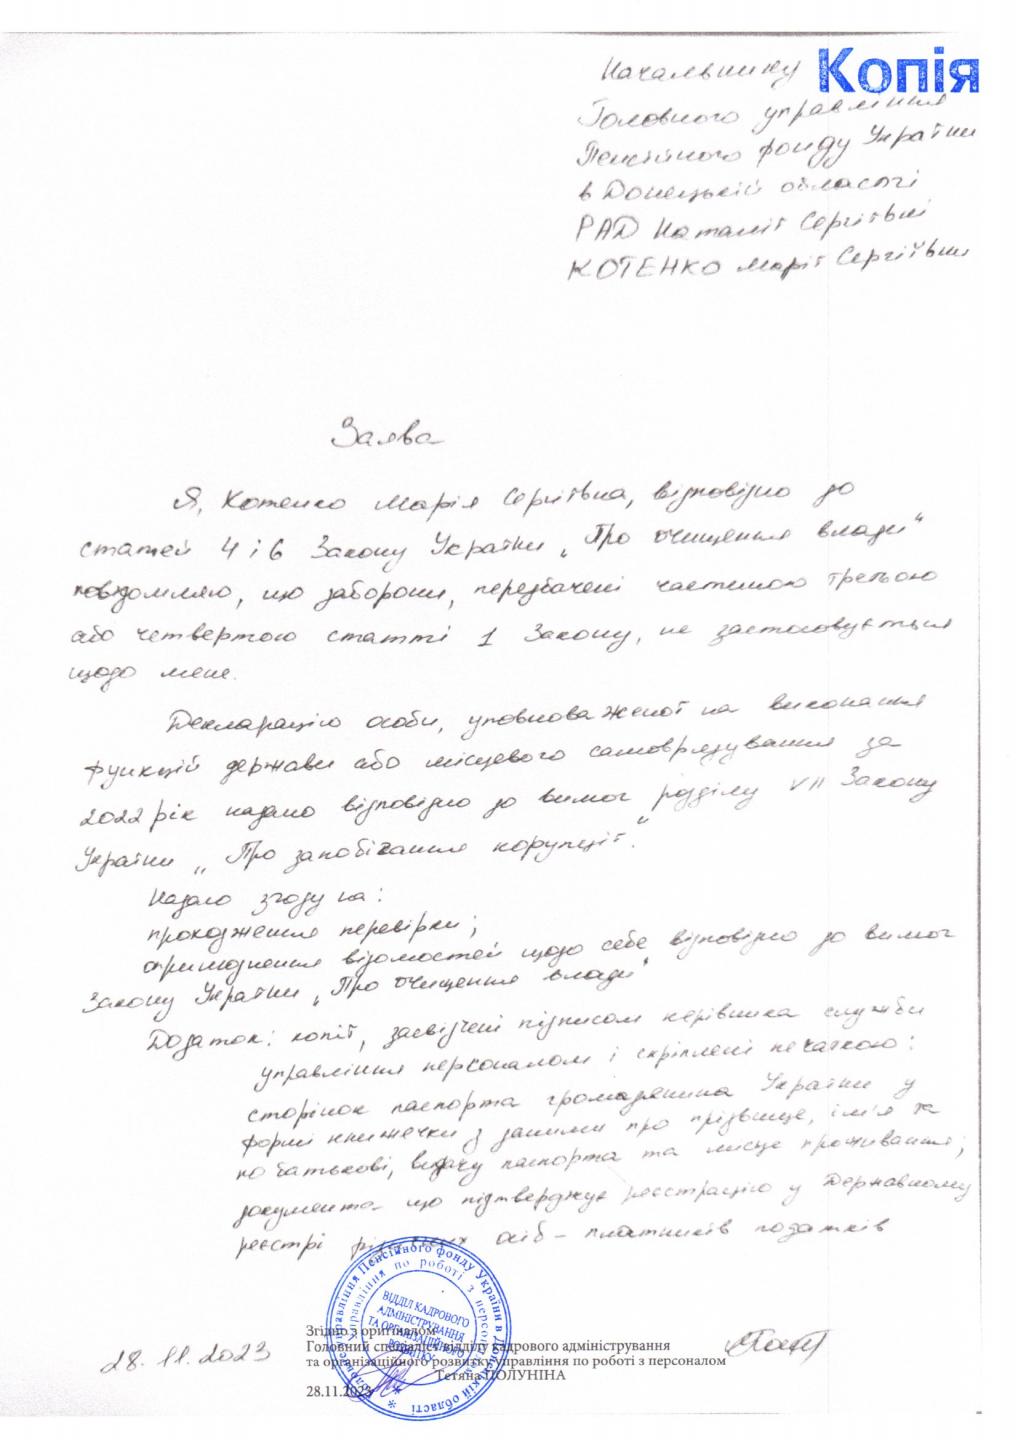 Копія
Начальнику
Головного управління
Пенсійного фонду України
в Донецькій області
РАД Наталії Сергіївні
КОТЕНКО Марії Сергіївни
Заява
Я, Котенко Марія Сергіївна, відповідно до
статей 4 і 6 Закону України „Про очищення влади“
повідомляю, що заборони, передбачені частиною третьою
або четвертою статті 1 Закону, не застосовується
щодо мене.
Декларацію особи, уповноваженої на виконання
функцій держави або місцевого самоврядування за
2022 рік надано відповідно до вимог розділу VII Закону
України „Про запобігання корупції“.
Надаю згоду на:
проходження перевірки;
оприлюднення відомостей щодо себе відповідно до вимог
Закону України „Про очищення влади“
Додаток: копії, засвідчені підписом керівника служби
управління персоналом і скріплені печаткою:
сторінок паспорта громадянина України у
формі книжечки з даними про прізвище, ім'я та
по батькові, видачу паспорта та місце проживання;
документа що підтверджує реєстрацію у Державному
реєстрі фізичних осіб – платників податків
28.11.2023
Згідно з оригіналом
Головний спеціаліст відділу кадрового адміністрування
та організаційного розвитку управління по роботі з персоналом
Тетяна ПОЛУНІНА
28.11.2023
Головне управління Пенсійного фонду України в Донецькій області
управління по роботі з персоналом
ВІДДІЛ КАДРОВОГО
АДМІНІСТРУВАННЯ
ТА ОРГАНІЗАЦІЙНОГО
РОЗВИТКУ